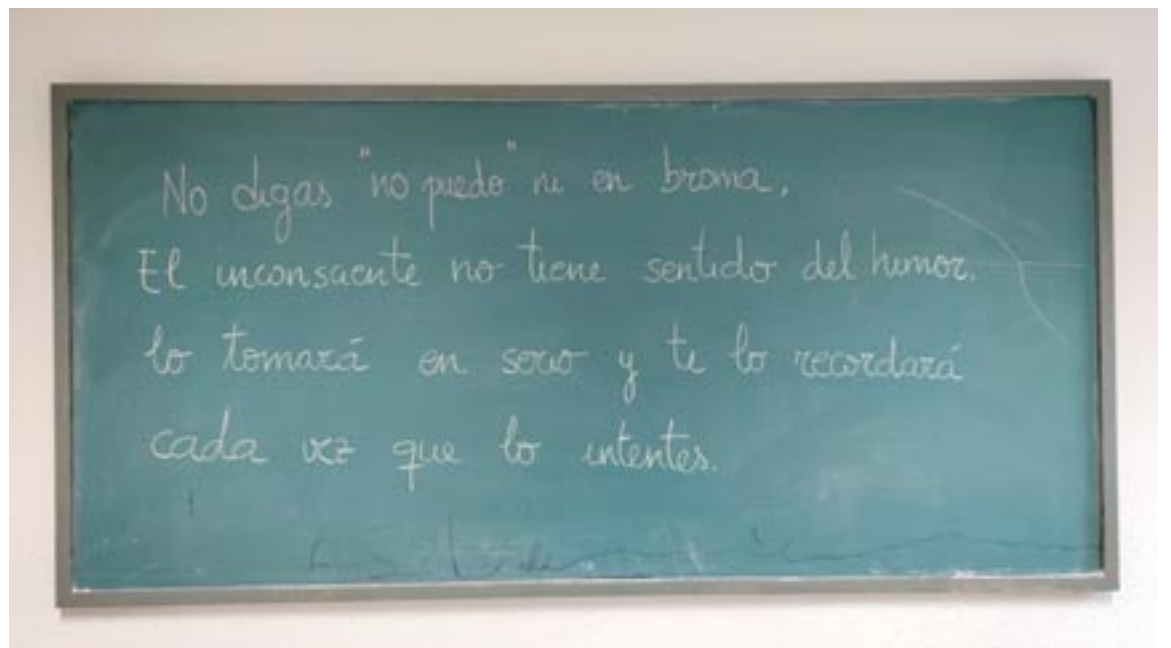 No digas "no puedo" ni en broma,
El inconsciente no tiene sentido del humor,
lo tomará en serio y te lo recordará
cada vez que lo intentes.